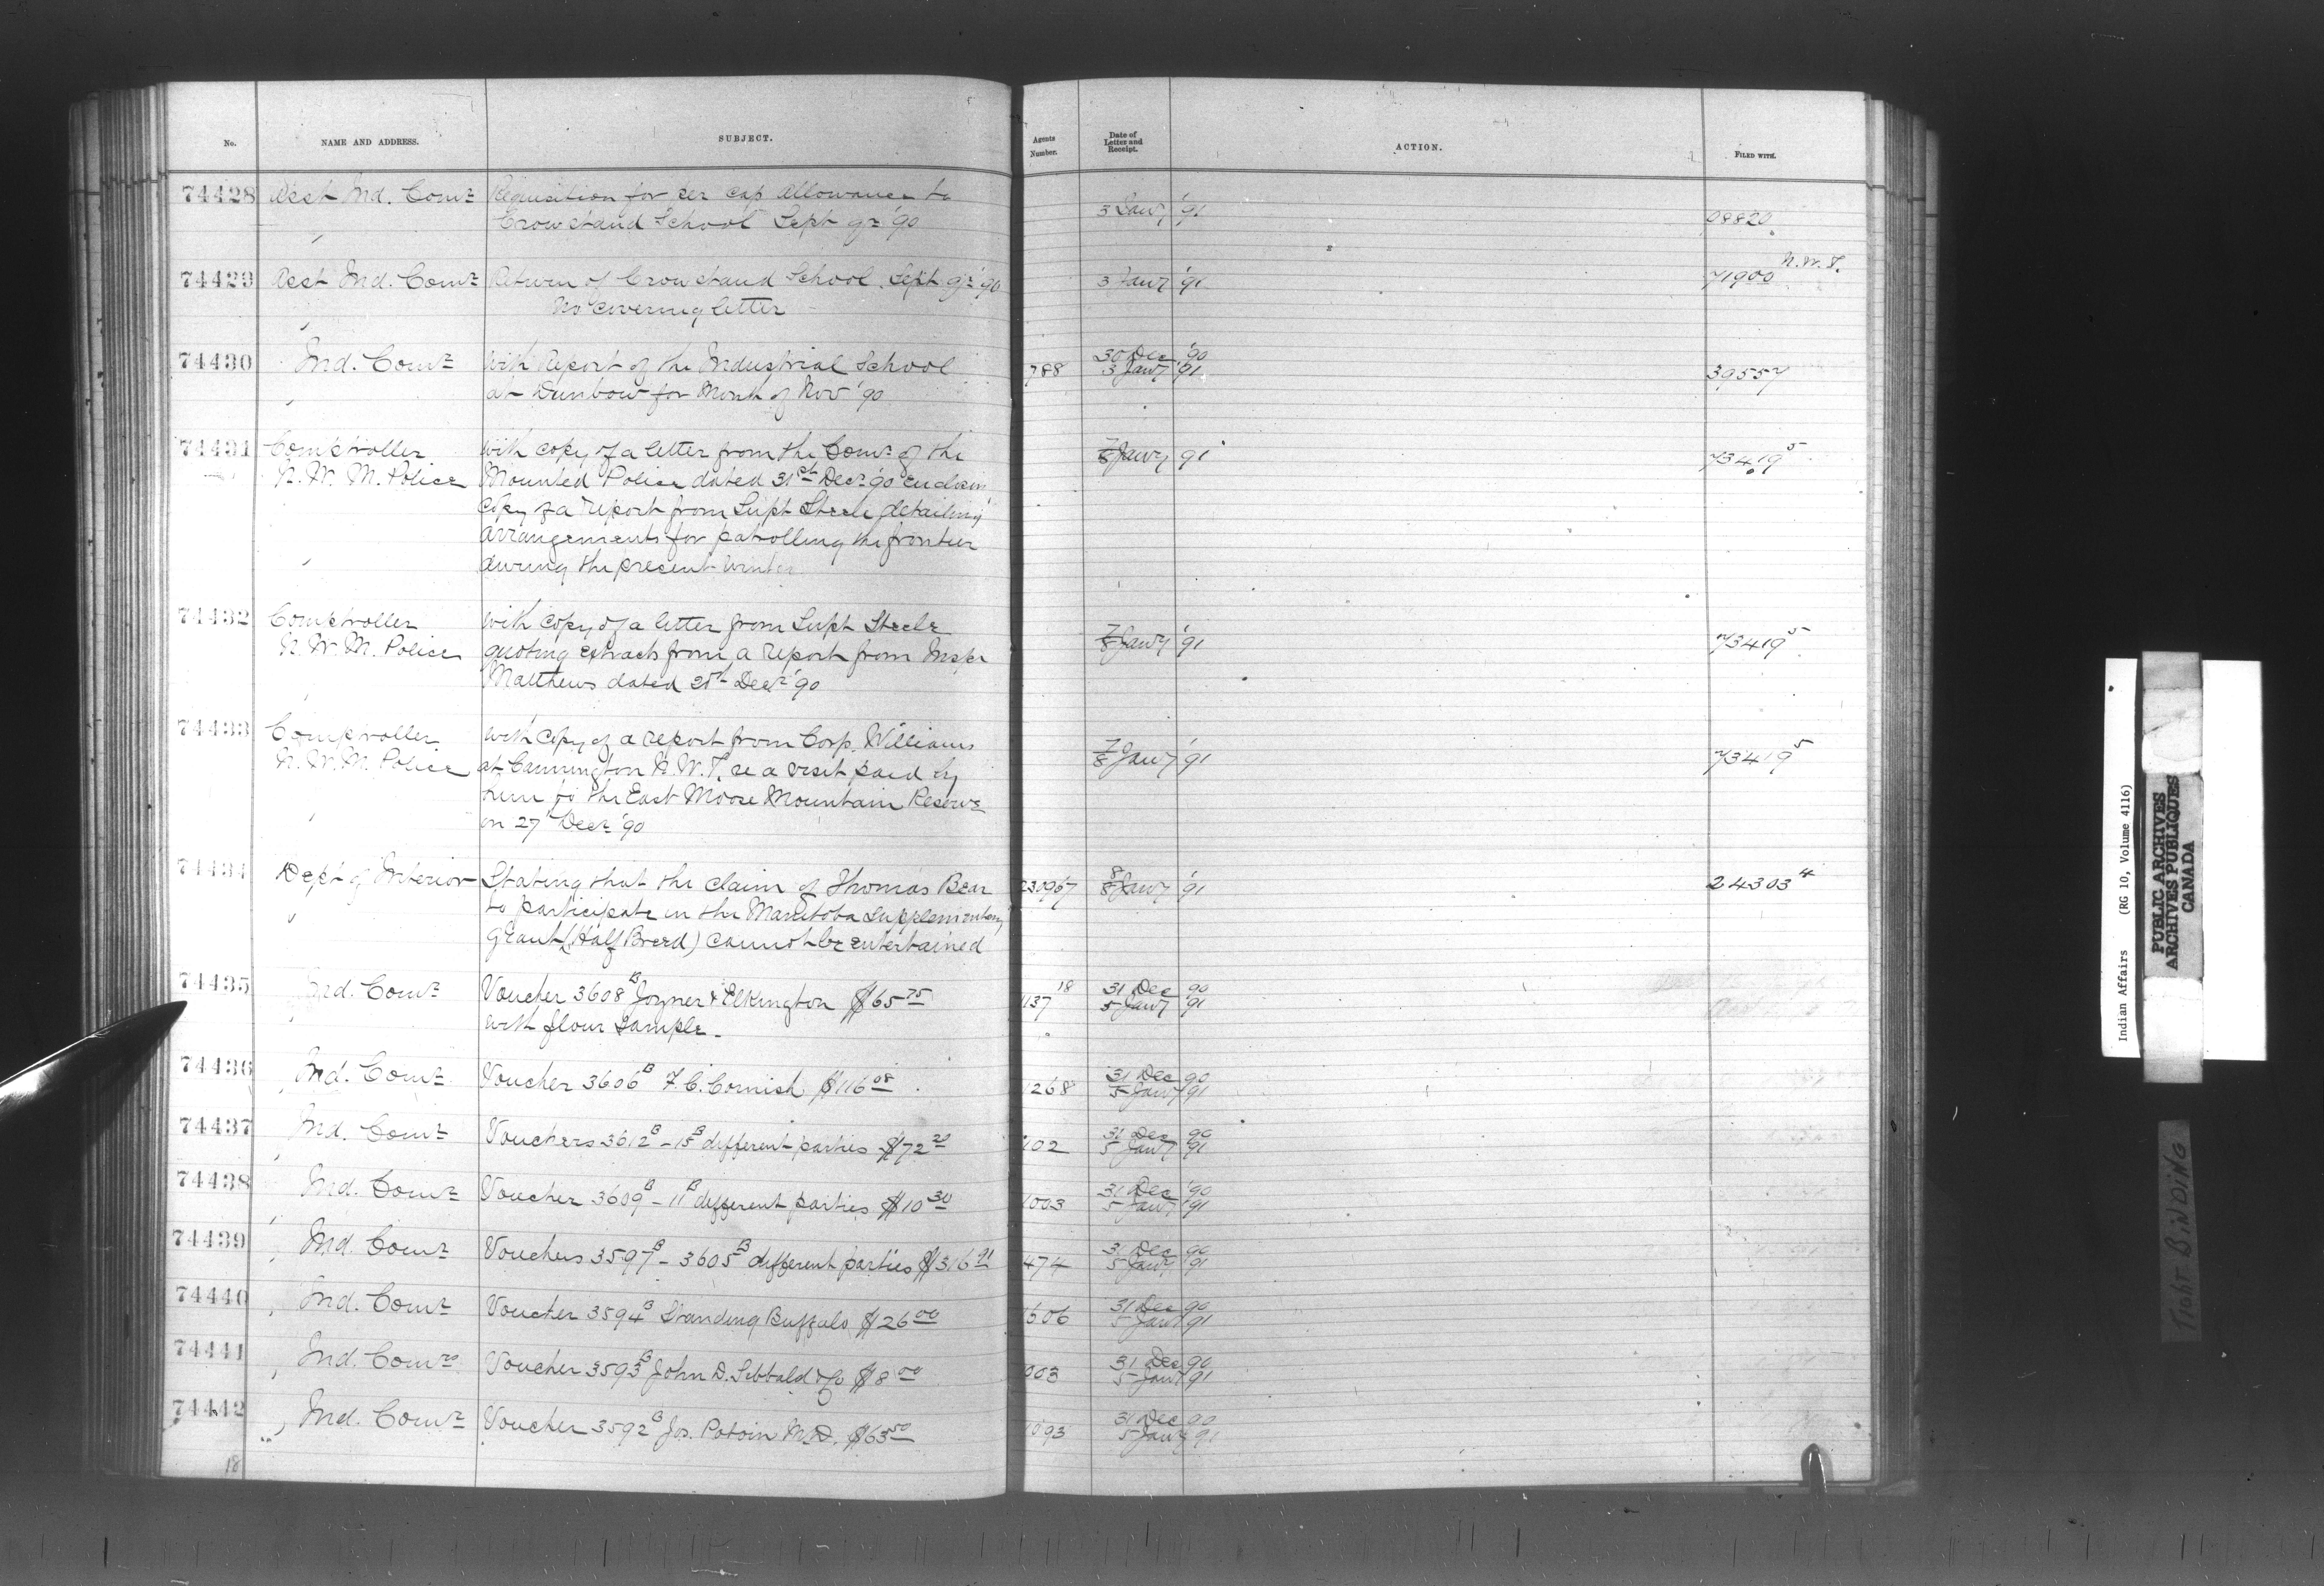 No. NAME AND ADDRESS. SUBJECT. Agents Number. Date of Letter and Receipt. ACTION. FILED WITH.
74428 Asst Ind. Comr Requisition for per cap allowance to
Crowstand School Sept qr '90 3 Jany '91 08820
74429 Asst Ind. Comr Return of Crowstand School. Sept. qr '90 3 Jany '91 71900 N.W.T.
No covering letter
74430 Ind. Comr With Report of the Industrial School 788 30 Dec '90 39557
at Dunbow for Month of Nov '90 3 Jany '91
74431 Comptroller With copy of a letter from the Comr of the 7/8 Jany '91 73419 5
N.W.M. Police Mounted Police dated 31st Decr '90 enclosing
copy of a report from Supt Steele detailing
arrangements for patrolling the frontier
during the present winter
74432 Comptroller With copy of a letter from Supt Steele
N.W.M. Police quoting extracts from a report from Inspr 7/8 Jany '91 73419 5
Matthews dated Decr '90
74433 Comptroller With copy of a report from Corp. Williams
N.W.M. Police at Cannington N.W.T. re a visit paid by 7/8 Jany '91 73419 5
him to the East Moose Mountain Reserve
on 27 Decr '90
74434 Dept of Interior Stating that the claim of Thomas Bear 230967 8/8 Jany '91 24303 4
to participate in the Manitoba Supplementary
grant (Half Breed) cannot be entertained
74435 Ind. Comr Voucher 3608 B Joyner & Elkington $65 75 1137 18 31 Dec 90
with flour sample. 5 Jany 91
74436 Ind. Comr Voucher 3606 B F. C. Cornish $116 08 1268 31 Dec 90
5 Jany 91
74437 Ind. Comr Vouchers 3612 B - 15 B different parties $72 20 102 31 Dec 90
5 Jany 91
74438 Ind. Comr Voucher 3609 B - 11 B different parties $10 30 1003 31 Dec '90
5 Jany '91
74439 Ind. Comr Vouchers 3597 B - 3605 B different parties $316 91 474 31 Dec 90
5 Jany 91
74440 Ind. Comr Voucher 3594 B Standing Buffalo $26 00 1506 31 Dec 90
5 Jany 91
74441 Ind. Comr Voucher 3593 B John D. Sibbald $8 00 003 31 Dec 90
5 Jany 91
74442 Ind. Comr Voucher 3592 B Jos. Potvin M.D. $63 50 1093 31 Dec 90
5 Jany 91
18
Indian Affairs (RG 10, Volume 4116)
PUBLIC ARCHIVES
ARCHIVES PUBLIQUES
CANADA
TIGHT BINDING